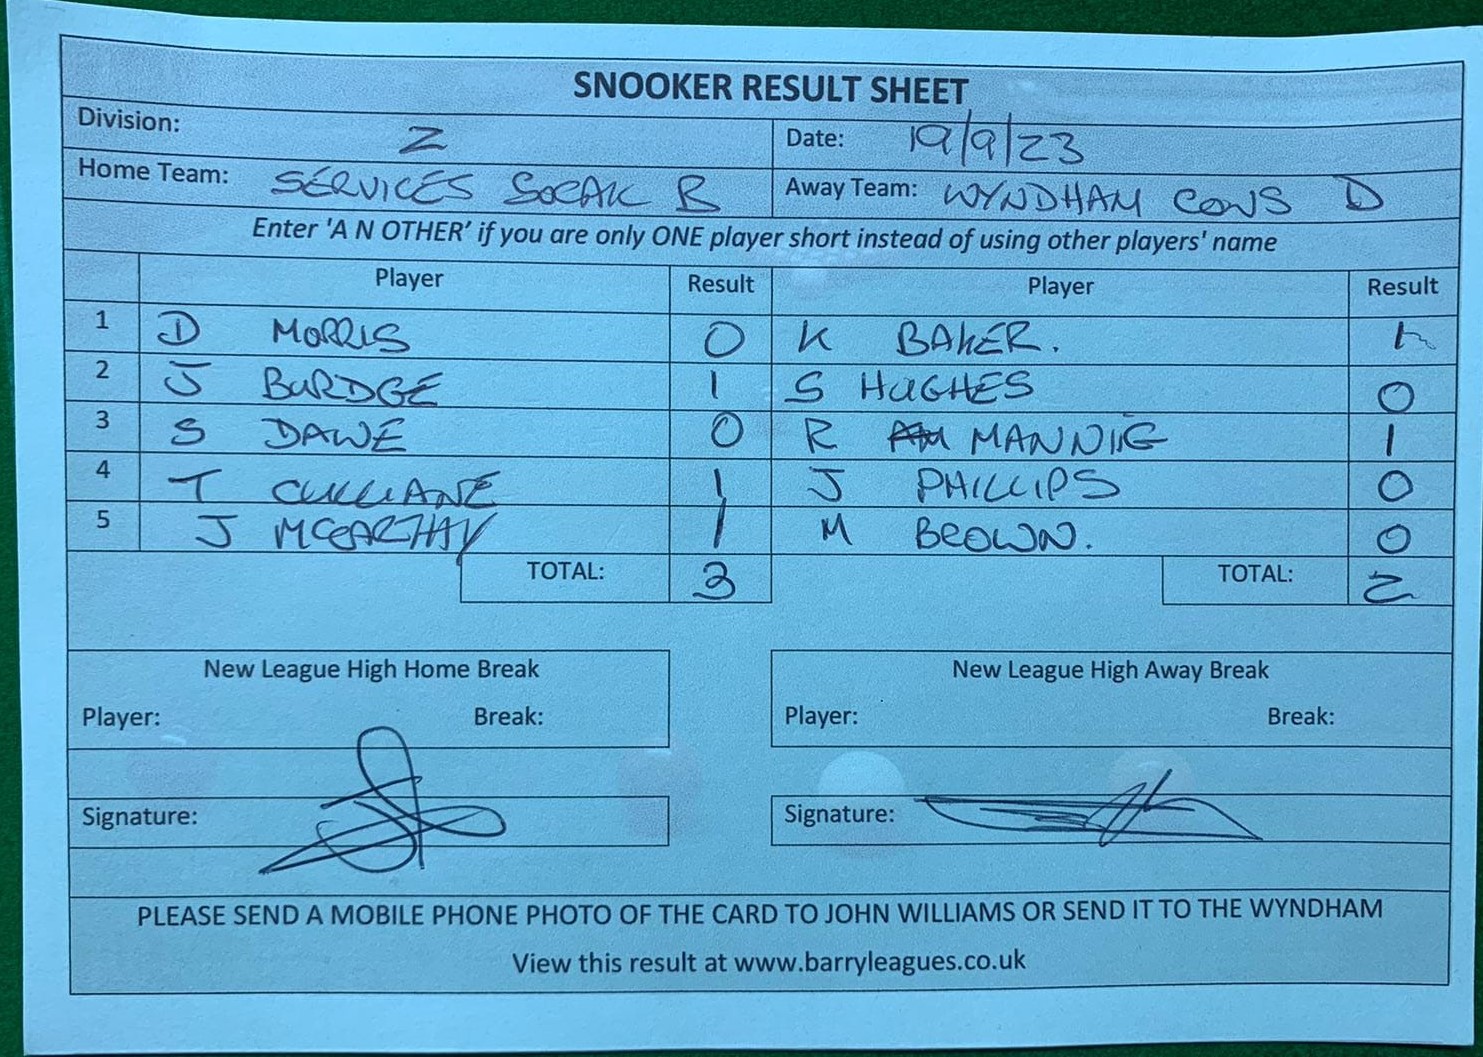 SNOOKER RESULT SHEET
Division: 2 Date: 19/9/23
Home Team: SERVICES SOCAK B Away Team: WYNDHAM CONS D
Enter 'A N OTHER' if you are only ONE player short instead of using other players' name
Player Result Player Result
1 D MORRIS 0 K BAKER. 1
2 J BURDGE 1 S HUGHES 0
3 S DAWE 0 R MANNIIG 1
4 T CULLIANE 1 J PHILLIPS 0
5 J MCCARTHY 1 M BROWN. 0
TOTAL: 3 TOTAL: 2
New League High Home Break New League High Away Break
Player: Break: Player: Break:
Signature: Signature:
PLEASE SEND A MOBILE PHONE PHOTO OF THE CARD TO JOHN WILLIAMS OR SEND IT TO THE WYNDHAM
View this result at www.barryleagues.co.uk